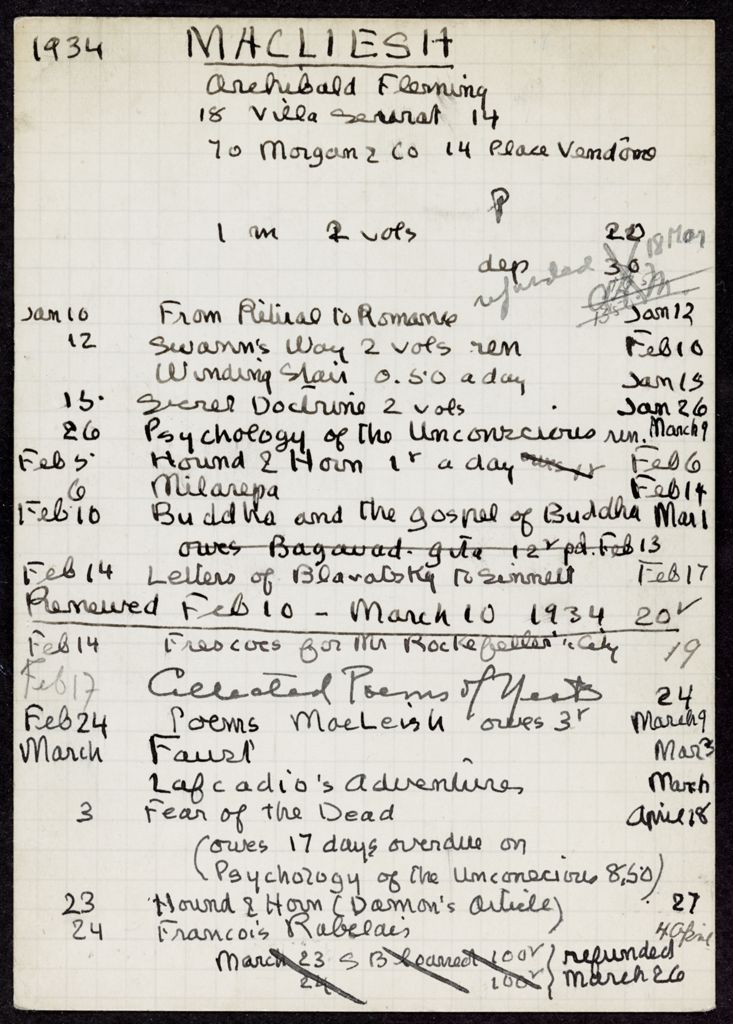 1934 MACLIESH
Archibald Flemming
18 Villa Seurat 14
70 Morgan & Co 14 Place Vendôme
P
1 m 2 vols 20
18 Mar
dep 30
refunded
Jan 10 From Ritual to Romance Jan 12
12 Swann's Way 2 vols ren Feb 10
Winding Stair 0.50 a day Jan 15
15. Secret Doctrine 2 vols Jan 26
26 Psychology of the Unconscious ren. March 9
Feb 5 Hound & Horn 1r a day Feb 6
6 Milarepa Feb 14
Feb 10 Buddha and the gospel of Buddha Mar 1
owes Bagavad-gita 12r pd. Feb 13
Feb 14 Letters of Blavatsky to Sinnett Feb 17
Renewed Feb 10 - March 10 1934 20r
Feb 14 Frescoes for Mr Rockefeller's City 19
Feb 17 Collected Poems of Yeats 24
Feb 24 Poems MacLeish owes 3r March 9
March Faust Mar 3
Lafcadio's Adventures March
3 Fear of the Dead April 18
(owes 17 days overdue on
Psychology of the Unconscious 8,50)
23 Hound & Horn (Damon's article) 27
24 Francois Rabelais 4 April
March 23 S B loaned 100r } refunded
24 100r } March 26